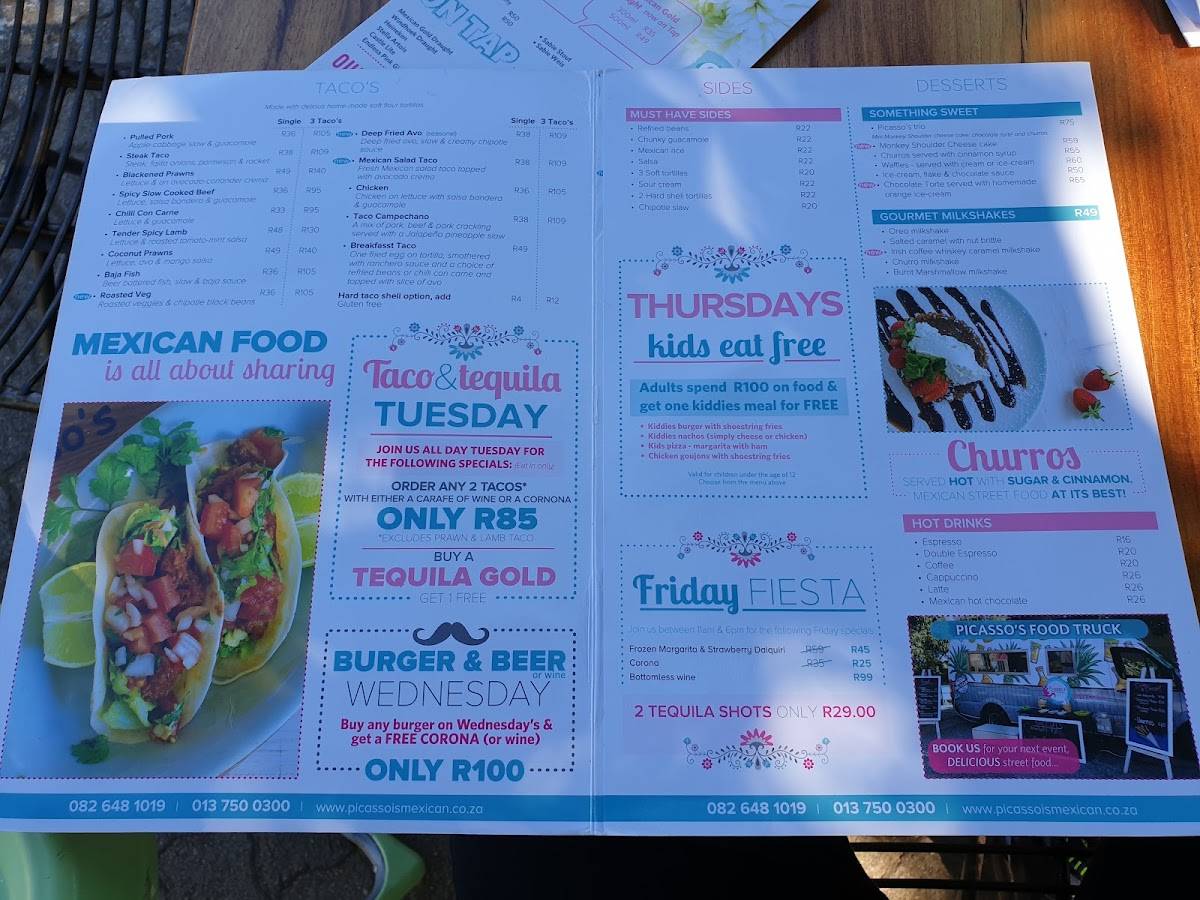 ON TAP
Mexican Gold Draught
Windhoek Draught
Heineken
Stella Artois
Castle Lite
R50
R50
• Sable Stout
• Sable Weis
Gold
now on Tap
300ml R35
500ml R49
TACO'S
Made with delious home-made soft flour tortillas
Single 3 Taco's
• Pulled Pork R36 R105
Apple-cabbage slaw & guacamole
• Steak Taco R38 R109
Steak, fajita onions, parmesan & rocket
• Blackened Prawns R49 R140
Lettuce & an avocado-coriander crema
• Spicy Slow Cooked Beef R36 R95
Lettuce, salsa bandera & guacamole
• Chilli Con Carne R33 R95
Lettuce & guacamole
• Tender Spicy Lamb R48 R130
Lettuce & roasted tomato-mint salsa
• Coconut Prawns R49 R140
Lettuce, avo & mango salsa
• Baja Fish R36 R105
Beer battered fish, slaw & baja sauce
new • Roasted Veg R36 R105
Roasted veggies & chipotle black beans
Single 3 Taco's
new • Deep Fried Avo (seasonal) R38 R109
Deep fried avo, slaw & creamy chipotle
sauce
new • Mexican Salad Taco R38 R109
Fresh Mexican salad taco topped
with avocado crema
• Chicken R36 R105
Chicken on lettuce with salsa bandera
& guacamole
• Taco Campechano R38 R109
A mix of pork, beef & pork crackling
served with a Jalapeño pineapple slaw
• Breakfasst Taco R49
One fried egg on tortilla, smothered
with ranchero sauce and a choice of
refried beans or chilli con carne and
topped with slice of avo
Hard taco shell option, add R4 R12
Gluten free
MEXICAN FOOD
is all about sharing
Taco & tequila
TUESDAY
JOIN US ALL DAY TUESDAY FOR
THE FOLLOWING SPECIALS: (Eat in only)
ORDER ANY 2 TACOS*
WITH EITHER A CARAFE OF WINE OR A CORNONA
ONLY R85
*EXCLUDES PRAWN & LAMB TACO
BUY A
TEQUILA GOLD
GET 1 FREE
BURGER & BEER
or wine
WEDNESDAY
Buy any burger on Wednesday's &
get a FREE CORONA (or wine)
ONLY R100
082 648 1019 | 013 750 0300 | www.picassoismexican.co.za
SIDES
MUST HAVE SIDES
• Refried beans R22
• Chunky guacamole R22
• Mexican rice R22
• Salsa R22
• 3 Soft tortillas R20
• Sour cream R22
• 2 Hard shell tortillas R22
• Chipotle slaw R20
THURSDAYS
kids eat free
Adults spend R100 on food &
get one kiddies meal for FREE
• Kiddies burger with shoestring fries
• Kiddies nachos (simply cheese or chicken)
• Kids pizza - margarita with ham
• Chicken goujons with shoestring fries
Valid for children under the age of 12
Choose from the menu above
Friday FIESTA
Join us between 11am & 6pm for the following Friday specials
Frozen Margarita & Strawberry Daiquiri R59 R45
Corona R35 R25
Bottomless wine R99
2 TEQUILA SHOTS ONLY R29.00
DESSERTS
SOMETHING SWEET
• Picasso's trio R75
Mini Monkey Shoulder cheese cake, chocolate torte and churros
new • Monkey Shoulder Cheese cake R59
• Churros served with cinnamon syrup R55
• Waffles - served with cream or ice-cream R60
• Ice-cream, flake & chocolate sauce R50
new • Chocolate Torte served with homemade R65
orange ice-cream
GOURMET MILKSHAKES R49
• Oreo milkshake
• Salted caramel with nut brittle
new • Irish coffee whiskey caramel milkshake
• Churro milkshake
• Burnt Marshmallow milkshake
Churros
SERVED HOT WITH SUGAR & CINNAMON.
MEXICAN STREET FOOD AT ITS BEST!
HOT DRINKS
• Espresso R16
• Double Espresso R20
• Coffee R20
• Cappuccino R26
• Latte R26
• Mexican hot chocolate R26
PICASSO'S FOOD TRUCK
BOOK US for your next event,
DELICIOUS street food...
082 648 1019 | 013 750 0300 | www.picassoismexican.co.za